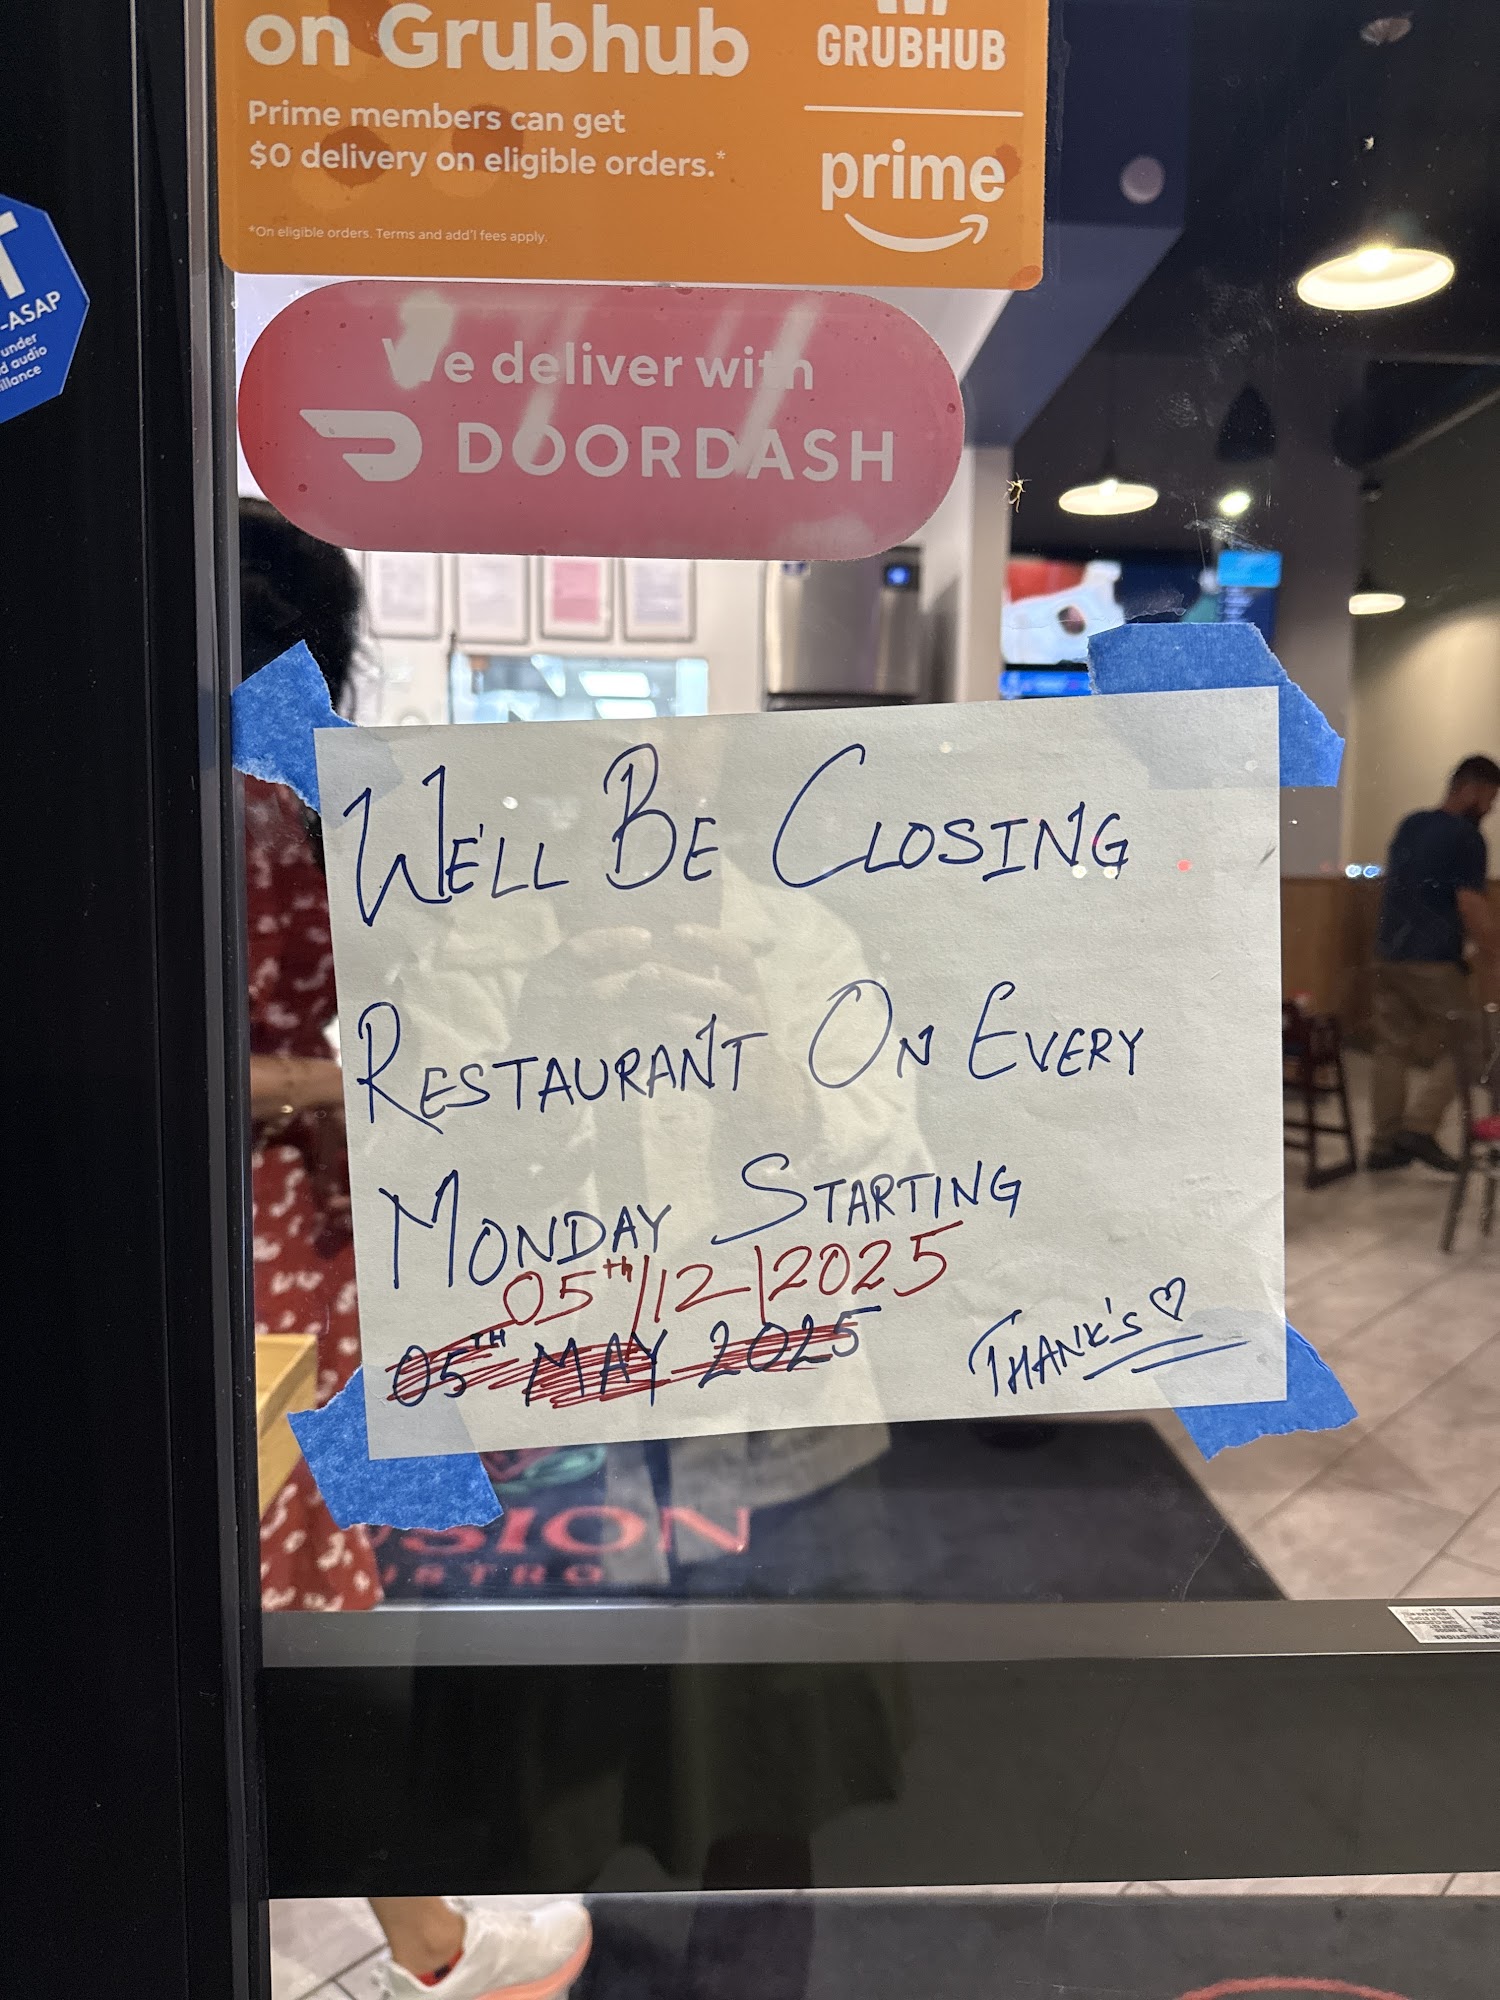 on Grubhub
Prime members can get
$0 delivery on eligible orders.*
*On eligible orders. Terms and add'l fees apply.
GRUBHUB
prime
T
-ASAP
under
audio
We deliver with
DOORDASH
WE'LL BE CLOSING
RESTAURANT ON EVERY
MONDAY STARTING
05th/12/2025
05TH MAY 2025
THANK'S
USION
ISTRO